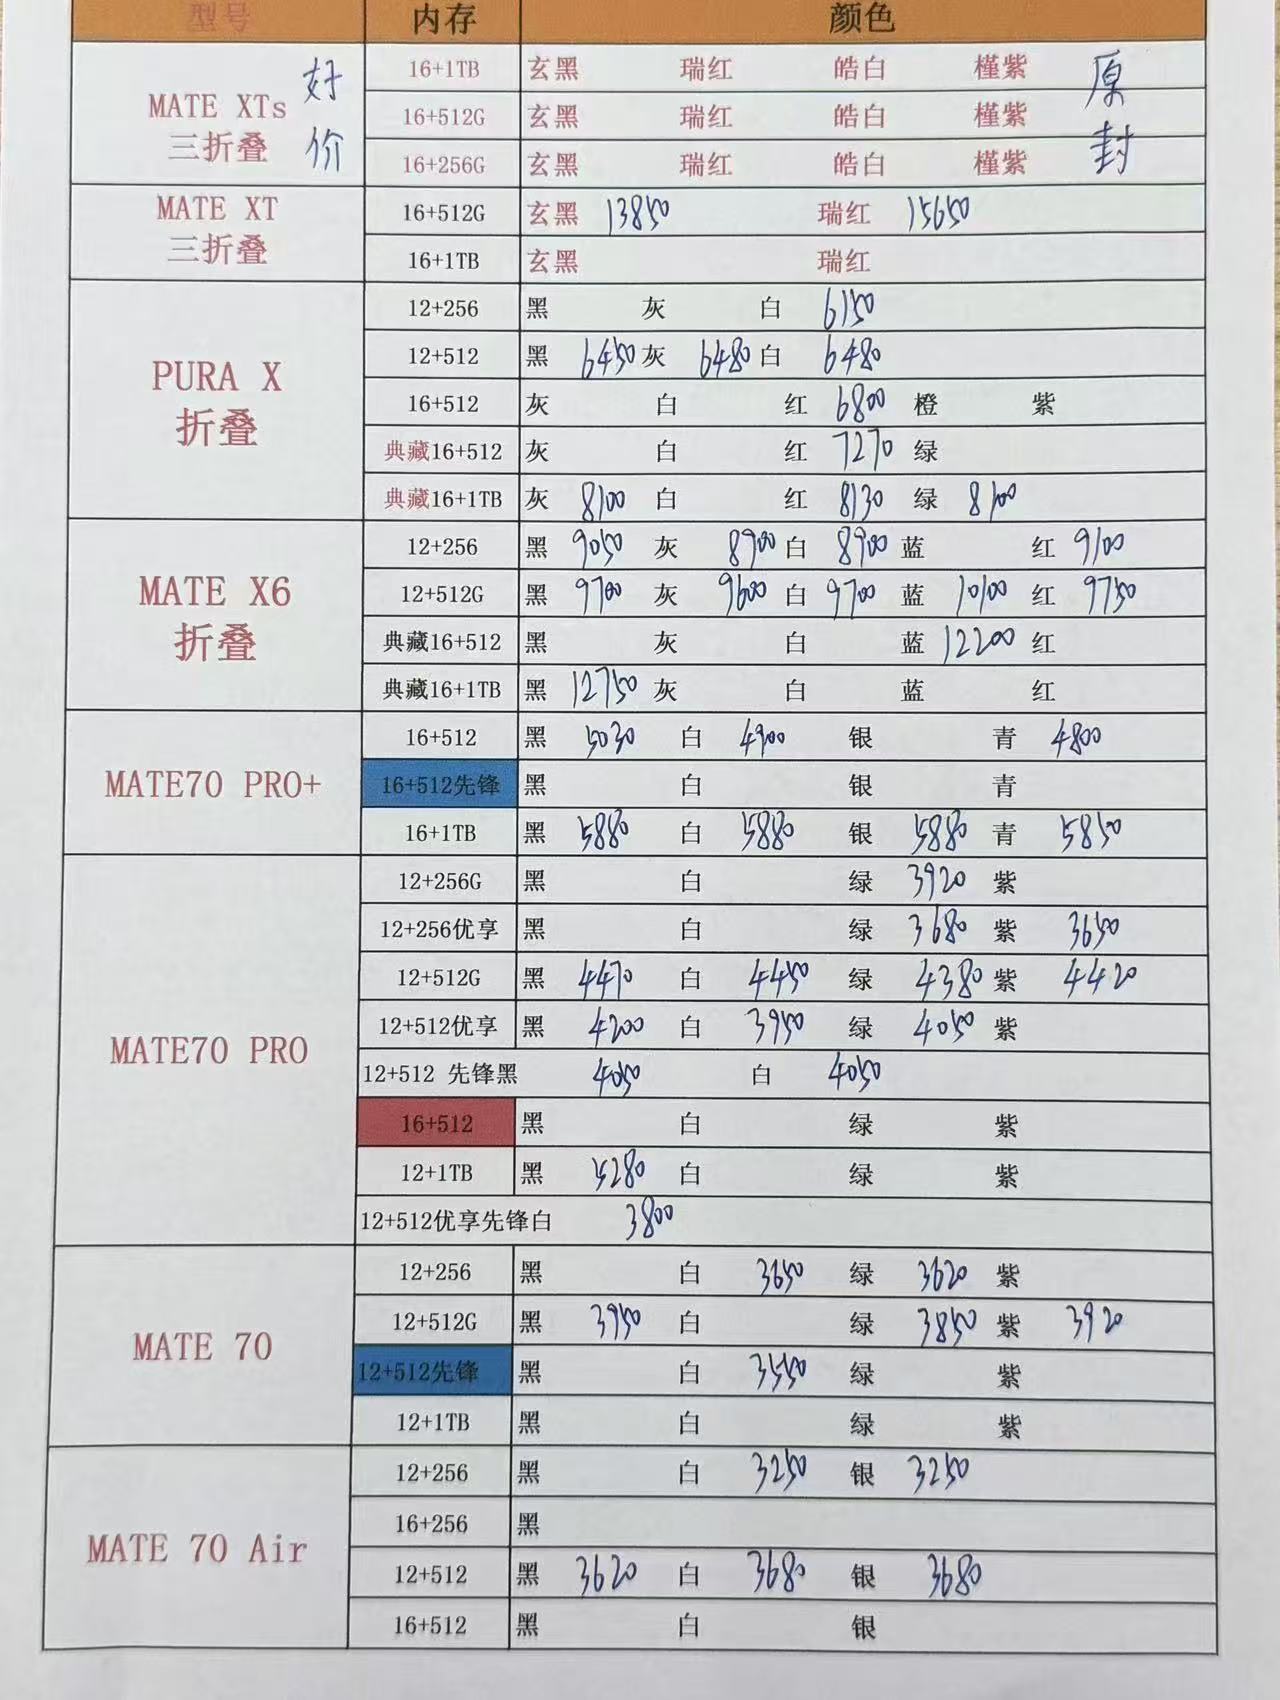 型号 内存 颜色
MATE XTs 三折叠 好价 原封
16+1TB 玄黑 瑞红 皓白 槿紫
16+512G 玄黑 瑞红 皓白 槿紫
16+256G 玄黑 瑞红 皓白 槿紫
MATE XT 三折叠
16+512G 玄黑 13850 瑞红 15650
16+1TB 玄黑 瑞红
PURA X 折叠
12+256 黑 灰 白 6150
12+512 黑 6450 灰 6480 白 6480
16+512 灰 白 红 6800 橙 紫
典藏16+512 灰 白 红 7270 绿
典藏16+1TB 灰 8100 白 红 8130 绿 8100
MATE X6 折叠
12+256 黑 9050 灰 8900 白 8900 蓝 红 9100
12+512G 黑 9700 灰 9600 白 9700 蓝 10100 红 9750
典藏16+512 黑 灰 白 蓝 12200 红
典藏16+1TB 黑 12750 灰 白 蓝 红
MATE70 PRO+
16+512 黑 5030 白 4900 银 青 4800
16+512先锋 黑 白 银 青
16+1TB 黑 5880 白 5880 银 5880 青 5850
MATE70 PRO
12+256G 黑 白 绿 3920 紫
12+256优享 黑 白 绿 3680 紫 3650
12+512G 黑 4470 白 4450 绿 4380 紫 4420
12+512优享 黑 4200 白 3950 绿 4050 紫
12+512 先锋黑 4050 白 4050
16+512 黑 白 绿 紫
12+1TB 黑 5280 白 绿 紫
12+512优享先锋白 3800
MATE 70
12+256 黑 白 3650 绿 3620 紫
12+512G 黑 3950 白 绿 3850 紫 3920
12+512先锋 黑 白 3550 绿 紫
12+1TB 黑 白 绿 紫
MATE 70 Air
12+256 黑 白 3250 银 3250
16+256 黑
12+512 黑 3620 白 3680 银 3680
16+512 黑 白 银